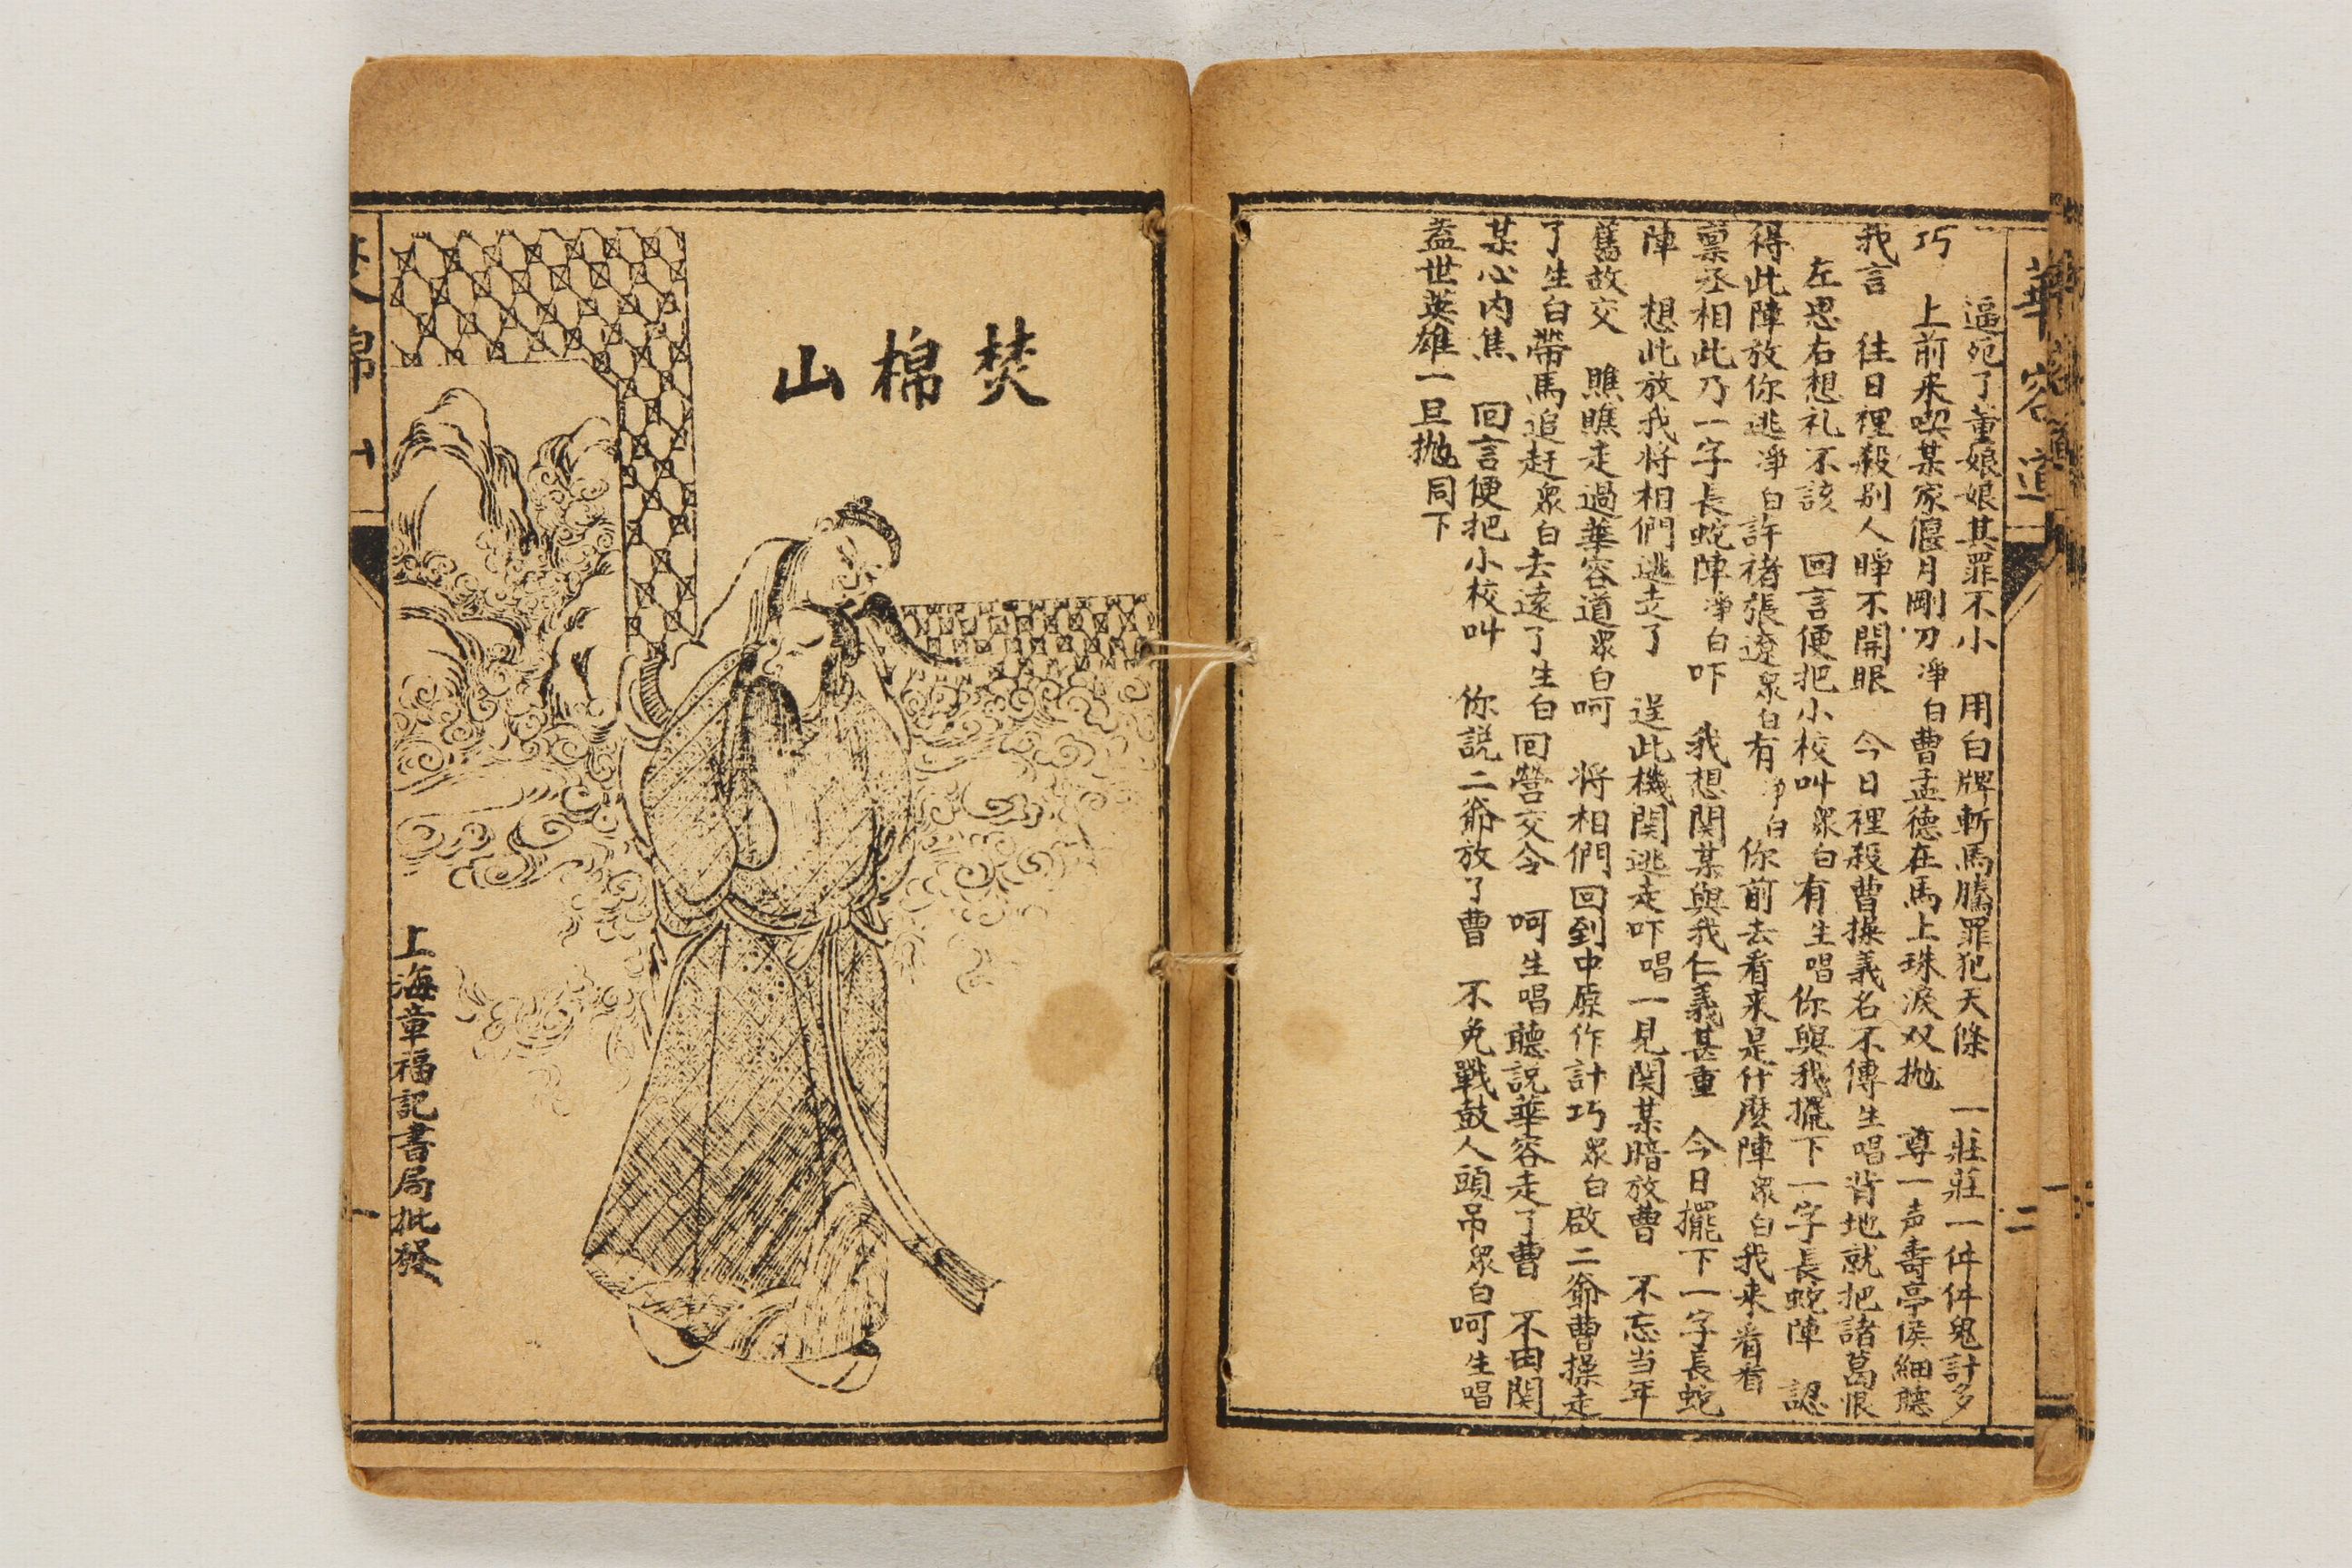 華容道
二
逼死了董娘娘其罪不小 用白牌斬馬騰罪犯天條 一莊莊一件件鬼計多
巧 上前来喫某家偃月剛刀淨白曹孟德在馬上珠淚双抛 尊一声壽亭侯細聽
我言 往日裡殺别人睜不開眼 今日裡殺曹操義名不傳生唱背地就把諸葛恨
左思右想礼不該 回言便把小校叫衆白有生唱你與我擺下一字長蛇陣 認
得此陣放你逃淨白許褚張遼衆白有淨白你前去看来是什麽陣衆白我来看看
稟丞相此乃一字長蛇陣淨白吓 我想関某與我仁義甚重 今日擺下一字長蛇
陣 想此放我将相們逃走了 逞此機関逃走吓唱一見関某暗放曹 不忘当年
舊故交 瞧瞧走過華容道衆白呵 将相們回到中原作計巧衆白啟二爺曹操走
了生白帶馬追赶衆白去遠了生白回營交令 呵生唱聽説華容走了曹 不由関
某心内焦 回言便把小校叫 你説二爺放了曹 不免戰鼓人頭吊衆白呵生唱
盖世英雄一旦抛同下
焚棉山
上海章福記書局批發
一